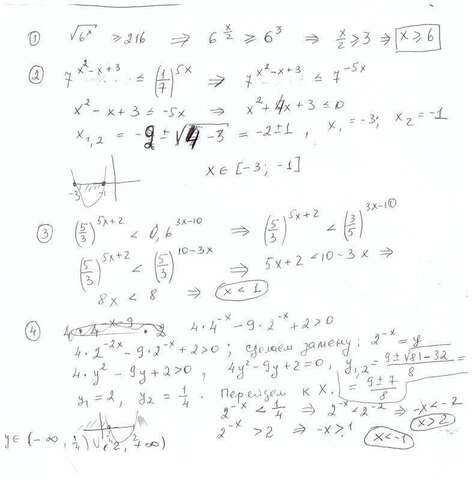 ① √6ˣ ≥ 216 ⇒ 6^(x/2) ≥ 6³ ⇒ x/2 ≥ 3 ⇒ x ≥ 6
② 7^(x²-x+3) ≤ (1/7)^(5x) ⇒ 7^(x²-x+3) ≤ 7^(-5x)
x² - x + 3 ≤ -5x ⇒ x² + 4x + 3 ≤ 0
x₁,₂ = -2 ± √(4-3) = -2 ± 1, x₁ = -3; x₂ = -1
-3 -1 x ∈ [-3; -1]
③ (5/3)^(5x+2) < 0,6^(3x-10) ⇒ (5/3)^(5x+2) < (3/5)^(3x-10)
(5/3)^(5x+2) < (5/3)^(10-3x) ⇒ 5x+2 < 10-3x ⇒
8x < 8 ⇒ x < 1
④ 4·4^(-x) - 9·2^(-x) + 2 > 0
4·2^(-2x) - 9·2^(-x) + 2 > 0; сделаем замену: 2^(-x) = y
4·y² - 9y + 2 > 0, 4y² - 9y + 2 = 0, y₁,₂ = (9 ± √(81-32))/8 =
y₁ = 2, y₂ = 1/4. Перейдем к x. = (9 ± 7)/8
2^(-x) < 1/4 ⇒ 2^(-x) < 2^(-2) ⇒ -x < -2
x > 2
y ∈ (-∞, 1/4) ∪ (2, +∞) 2^(-x) > 2 ⇒ -x > 1 x < -1